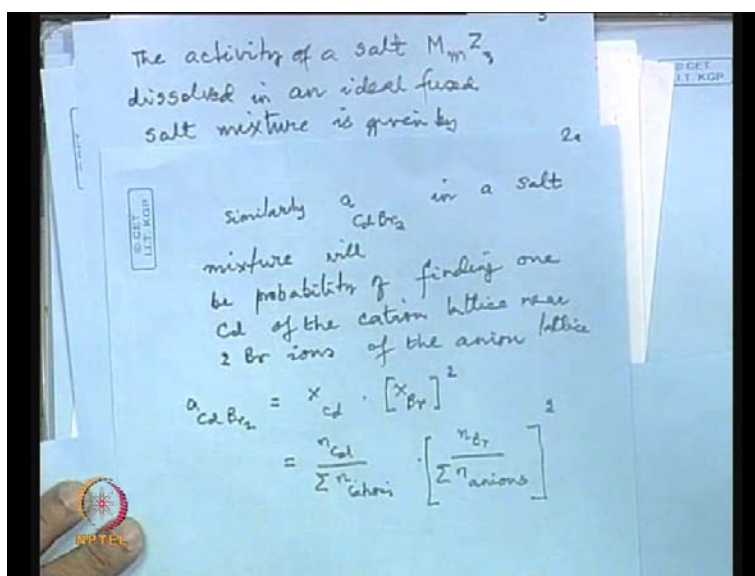 The activity of a salt MmZz
dissolved in an ideal fused
salt mixture is given by
© CET
I.I.T. KGP
2a
© CET
I.I.T. KGP
similarly a CdBr2 in a salt
mixture will
be probability of finding one
Cd of the cation lattice near
2 Br ions of the anion lattice
a CdBr2 = x Cd · [x Br]^2
= n Cd / Σ n cations · [n Br / Σ n anions]^2
NPTEL